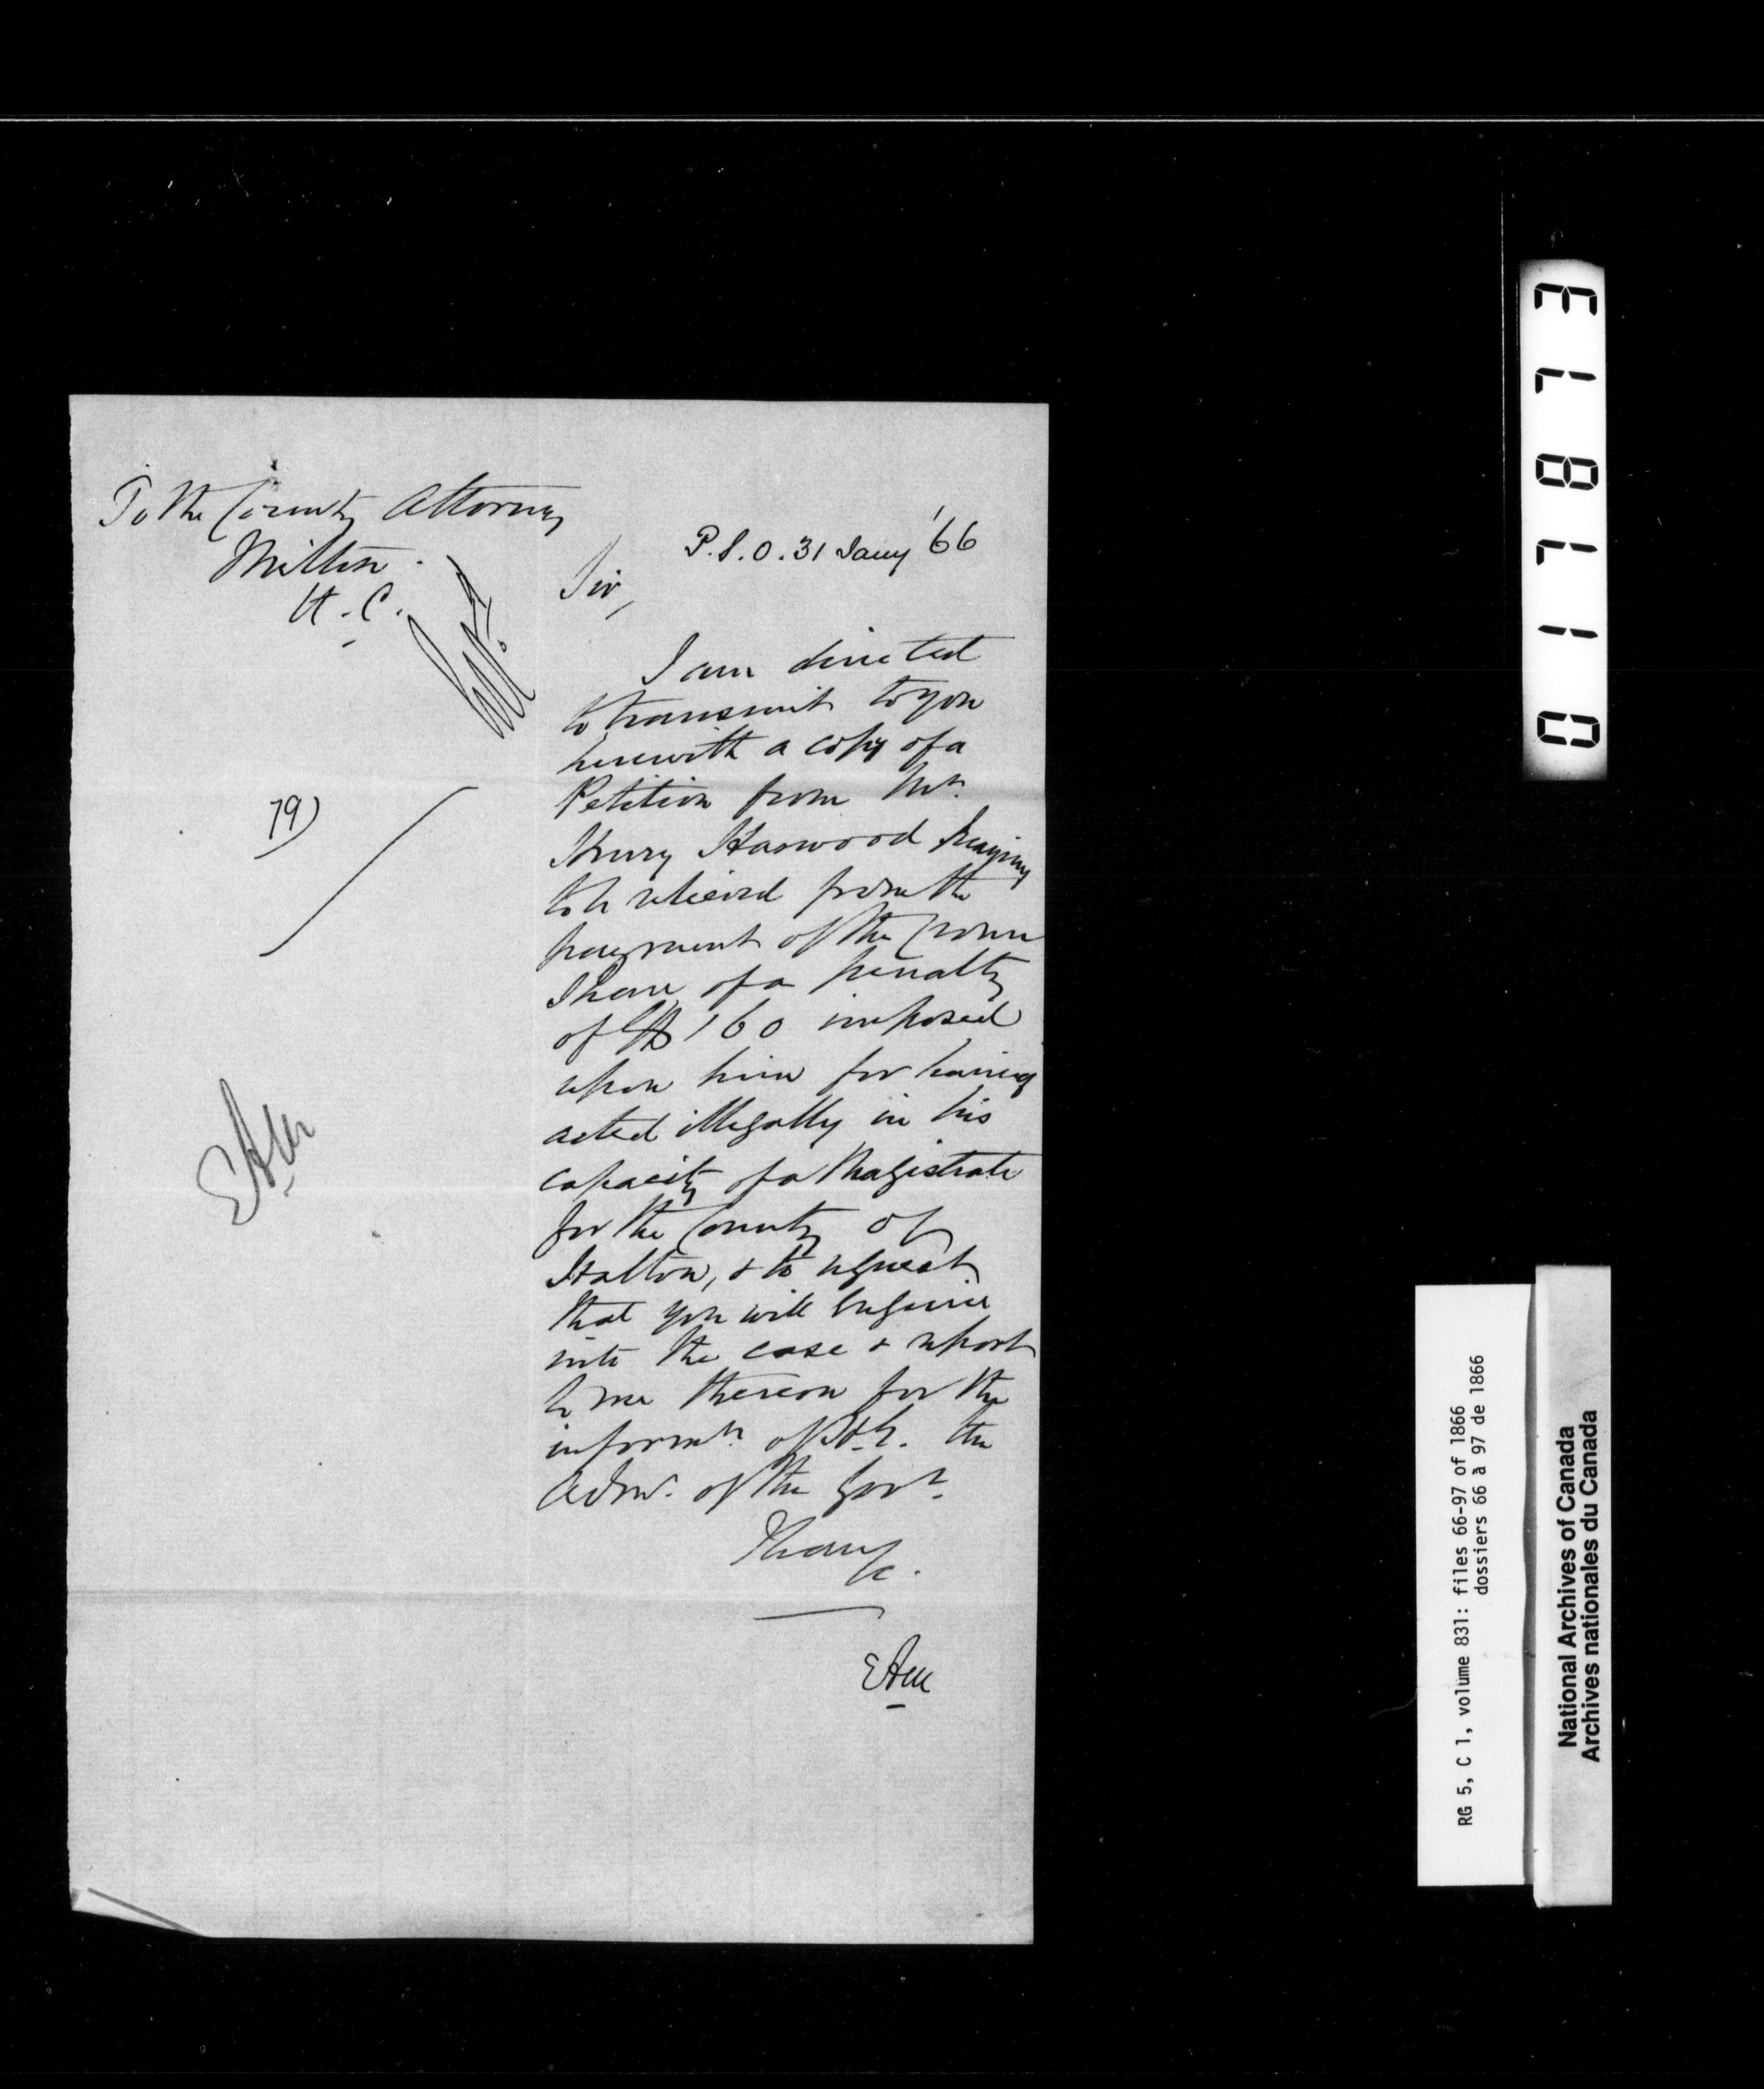 To the County Attorney
Milton.
U. C.
P.S.O. 31 Jany '66
Sir,
I am directed
to transmit to you
herewith a copy of a
Petition from Mr.
Henry Harwood praying
to be relieved from the
payment of the Crown
Share of a penalty
of $160 imposed
upon him for having
acted illegally in his
capacity of a Magistrate
for the County of
Halton, & to request
that you will enquire
into the case & report
to me thereon for the
informn. of H.E. the
Admr. of the Govt.
I have
&c.
EAM
79)
EAM
017873
RG 5, C 1, volume 831: files 66-97 of 1866
dossiers 66 à 97 de 1866
National Archives of Canada
Archives nationales du Canada